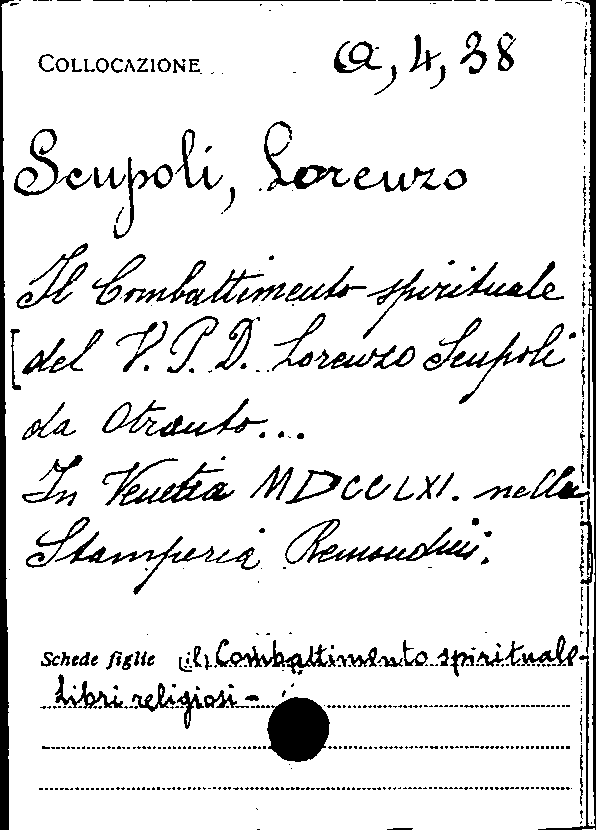 COLLOCAZIONE a, 4, 38
Scupoli, Lorenzo
Il Combattimento spirituale
[del V. P. D. Lorenzo Scupoli
da Otranto...
In Venetia MDCCLXI. nella
Stamperia Remondini.
Schede figlie (il) Combattimento spirituale-
Libri religiosi -